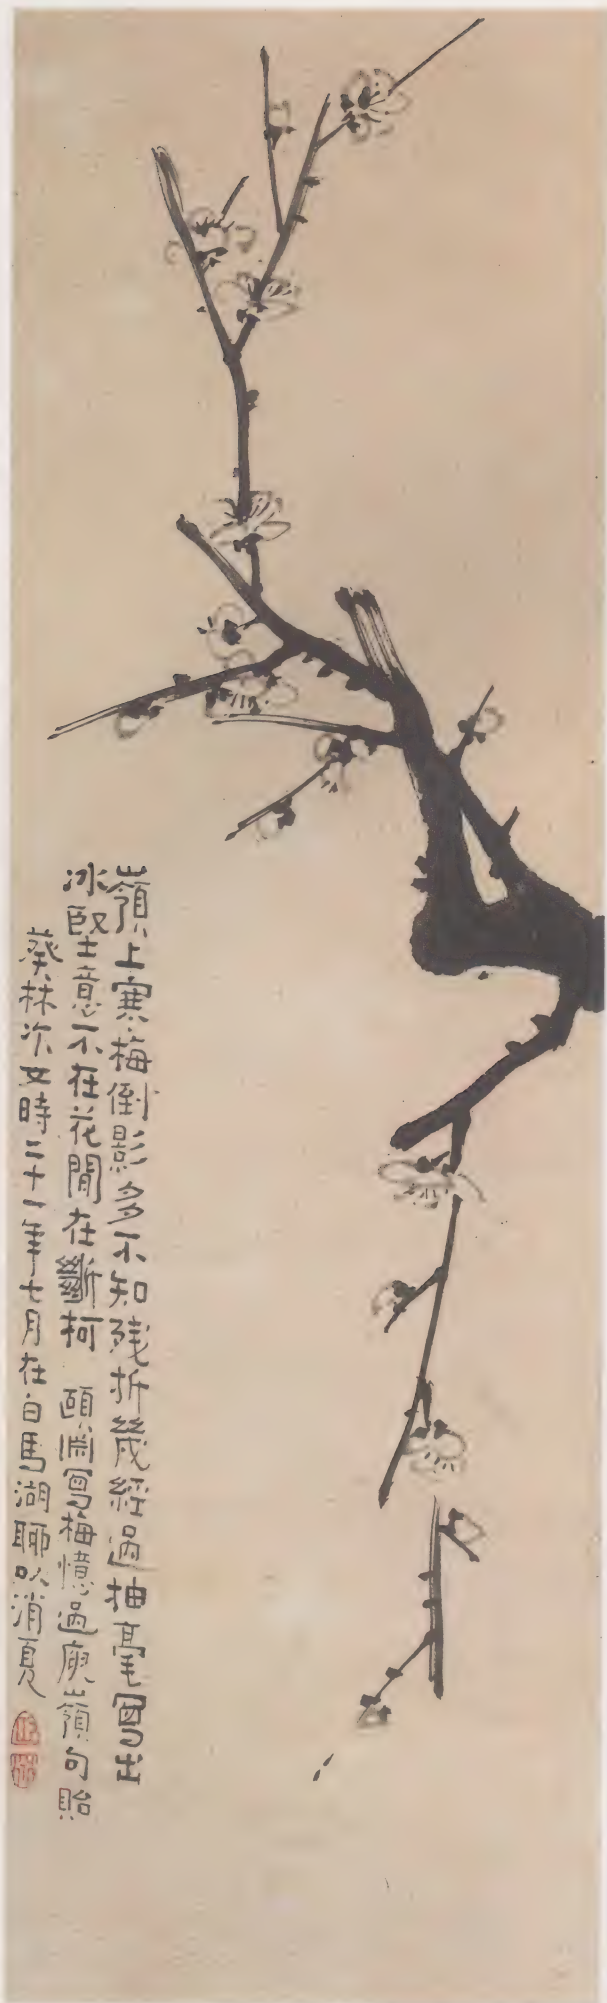 嶺上寒梅倒影多不知殘折幾經過抽毫寫出
冰堅意不在花間在斷柯 頤淵寫梅憶過庾嶺句貽
葵林次女時二十一年七月在白馬湖聊以消夏